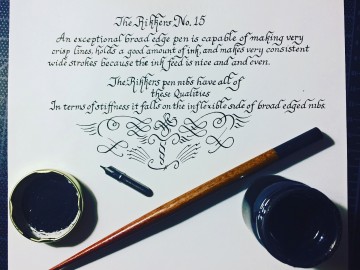 The Rikkers No. 15
An exceptional broad edge pen is capable of making very
crisp lines, holds a good amount of ink, and makes very consistent
wide strokes because the ink feed is nice and and even.
The Rikkers pen nibs have all of
these Qualities
In terms of stiffness it falls on the inflexible side of broad edged nibs.